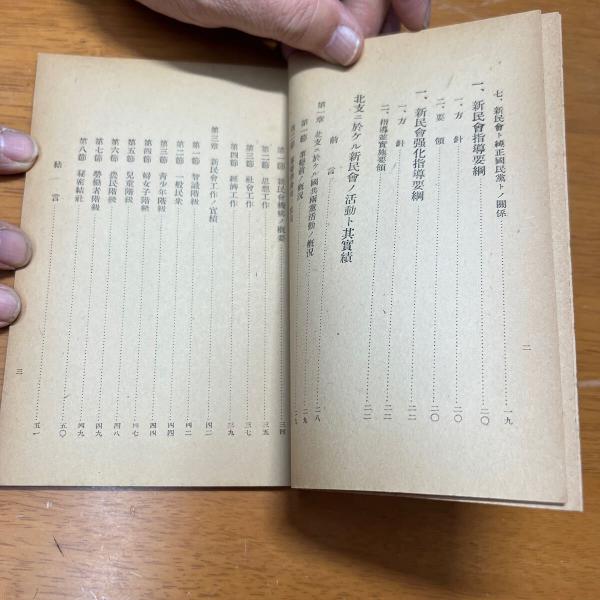 七、新民會ト繞正國民黨トノ關係 一九
一、新民會指導要綱 二〇
一、方針 二〇
二、要領 二〇
一、新民會强化指導要綱 二二
一、方針 二二
二、指導並實施要領 二二
北支ニ於ケル新民會ノ活動ト其實績
前言
第一章 北支ニ於ケル國共兩黨活動ノ槪況 二八
第一節 事變前ノ槪況 二九
二
第一節 新民會機構ノ槪要 三四
第二節 思想工作 三五
第三節 社會工作 三七
第四節 經濟工作 三九
第三章 新民會工作ノ實績 四二
第一節 智識階級 四二
第二節 一般民衆 四四
第三節 靑少年階級 四四
第四節 婦女子階級 四四
第五節 兒童階級 四七
第六節 農民階級 四八
第七節 勞働者階級 四九
第八節 秘密結社 四九
結言 五〇
五一
三